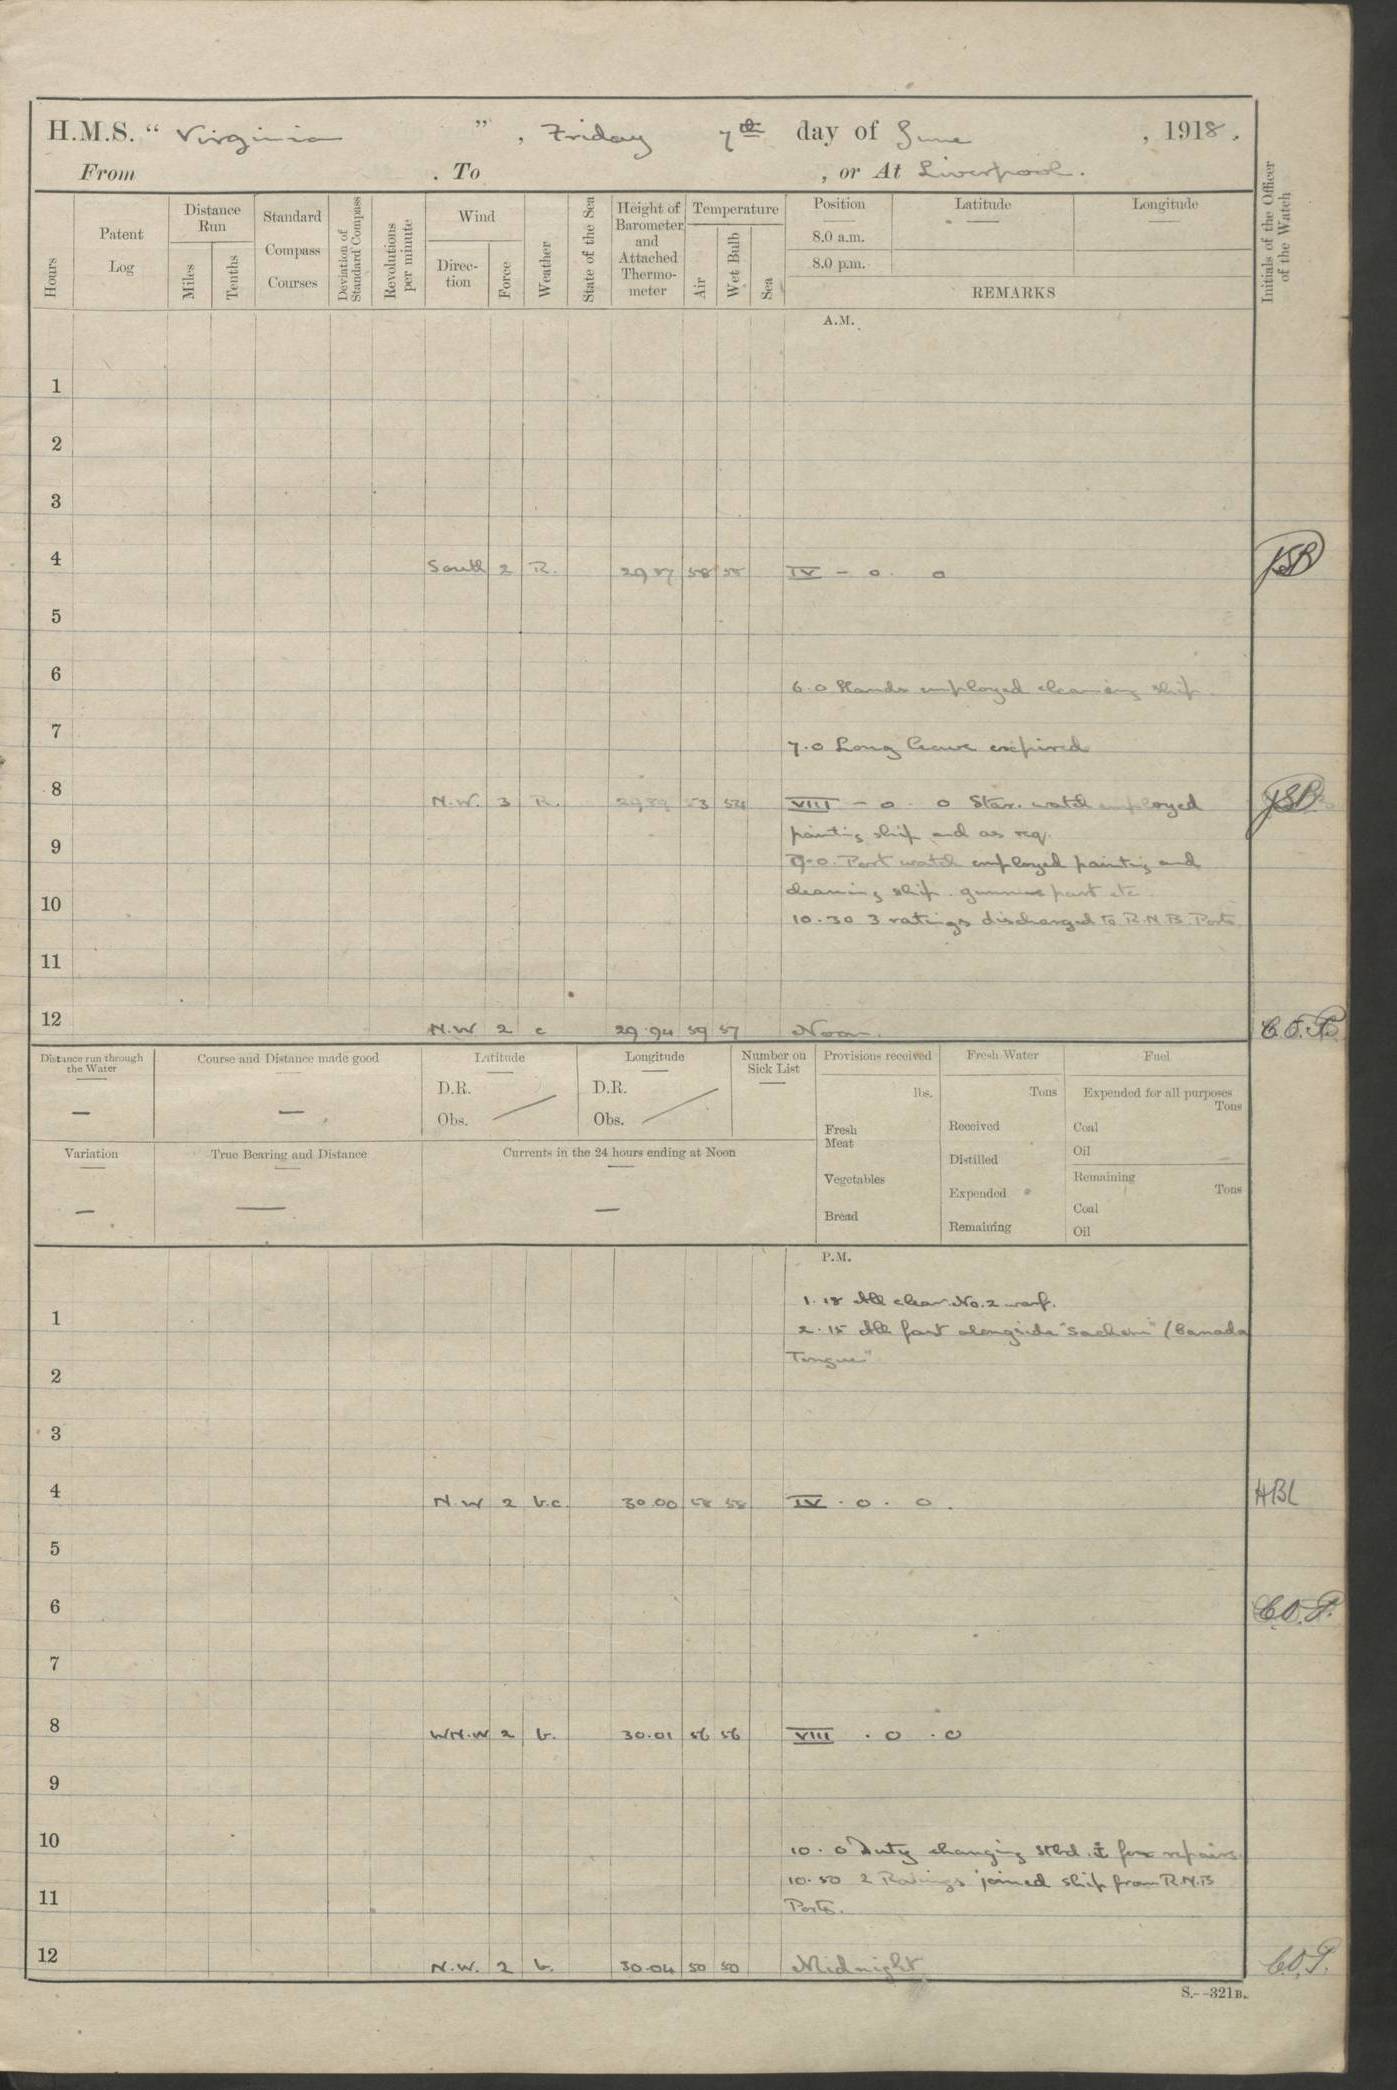 H.M.S. “ Virginia ” , Friday 7th day of June , 1918.
From . To , or At Liverpool.
Hours
Patent Log
Distance Run
Miles
Tenths
Standard Compass Courses
Deviation of Standard Compass
Revolutions per minute
Wind
Direc-tion
Force
Weather
State of the Sea
Height of Barometer and Attached Thermo-meter
Temperature
Air
Wet Bulb
Sea
Position
8.0 a.m.
8.0 p.m.
Latitude
Longitude
REMARKS
Initials of the Officer of the Watch
A.M.
1
2
3
4 South 2 R. 29.87 58 55 IV - 0. 0
5
6
6.0 Hands employed cleaning ship.
7
7.0 Long leave expired
8 N.W. 3 R. 29.89 53 52 VIII - 0. 0 Star. watch employed
painting ship and as req.
9
9.0. Port watch employed painting and
cleaning ship. part etc
10
10.30 3 ratings discharged to R.N.B. Ports
11
12 N.W 2 c 29.94 59 57 Noon.
Distance run through the Water
—
Course and Distance made good
—
Latitude
D.R.
Obs.
Longitude
D.R.
Obs.
Number on Sick List
Provisions received
lbs.
Fresh Meat
Vegetables
Bread
Fresh Water
Tons
Received
Distilled
Expended
Remaining
Fuel
Expended for all purposes
Tons
Coal
Oil
Remaining
Tons
Coal
Oil
Variation
—
True Bearing and Distance
—
Currents in the 24 hours ending at Noon
—
P.M.
1.18 All clear No.2 warf.
1
2.15 All fast alongside "Sachem" (Canada
Tongue"
2
3
4 N.W 2 b.c. 30.00 58 58 IV . 0 . 0 . HBL
5
6
7
8 WN.W 2 b. 30.01 56 56 VIII . 0 . 0
9
10
10.0 Duty changing stbd. for repairs.
10.50 2 Ratings joined ship from R.N.B
11
Ports.
12 N.W. 2 b. 30.04 50 50 Midnight
S.--321B.